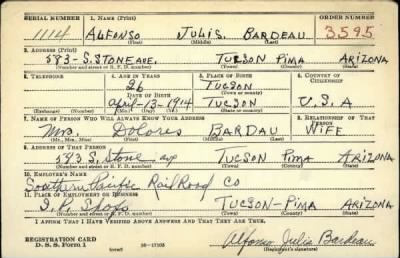 SERIAL NUMBER 1. NAME (Print) ORDER NUMBER
1114 ALFONSO JULIS. BARDEAU 3595
(First) (Middle) (Last)
2. ADDRESS (Print)
583-S. STONE AVE. TUCSON PIMA ARIZONA
(Number and street or R. F. D. number) (Town) (County) (State)
3. TELEPHONE 4. AGE IN YEARS 5. PLACE OF BIRTH 6. COUNTRY OF CITIZENSHIP
26 TUCSON
DATE OF BIRTH (Town or county)
April-13-1914 TUCSON U.S.A
(Exchange) (Number) (Mo.) (Day) (Yr.) (State or country)
7. NAME OF PERSON WHO WILL ALWAYS KNOW YOUR ADDRESS 8. RELATIONSHIP OF THAT PERSON
Mrs. Dolores BARDAU WIFE
(Mr., Mrs., Miss) (First) (Middle) (Last)
9. ADDRESS OF THAT PERSON
583 S. Stone ave TUCSON PIMA ARIZONA
(Number and street or R. F. D. number) (Town) (County) (State)
10. EMPLOYER'S NAME
Southern Pacific RailRoad Co
11. PLACE OF EMPLOYMENT OR BUSINESS
S.P. Shops TUCSON-PIMA ARIZONA
(Number and street or R. F. D. number) (Town) (County) (State)
I AFFIRM THAT I HAVE VERIFIED ABOVE ANSWERS AND THAT THEY ARE TRUE.
REGISTRATION CARD
D. S. S. FORM 1 (over) 16-17105 Alfonso Julis Bardeau
(Registrant's signature)